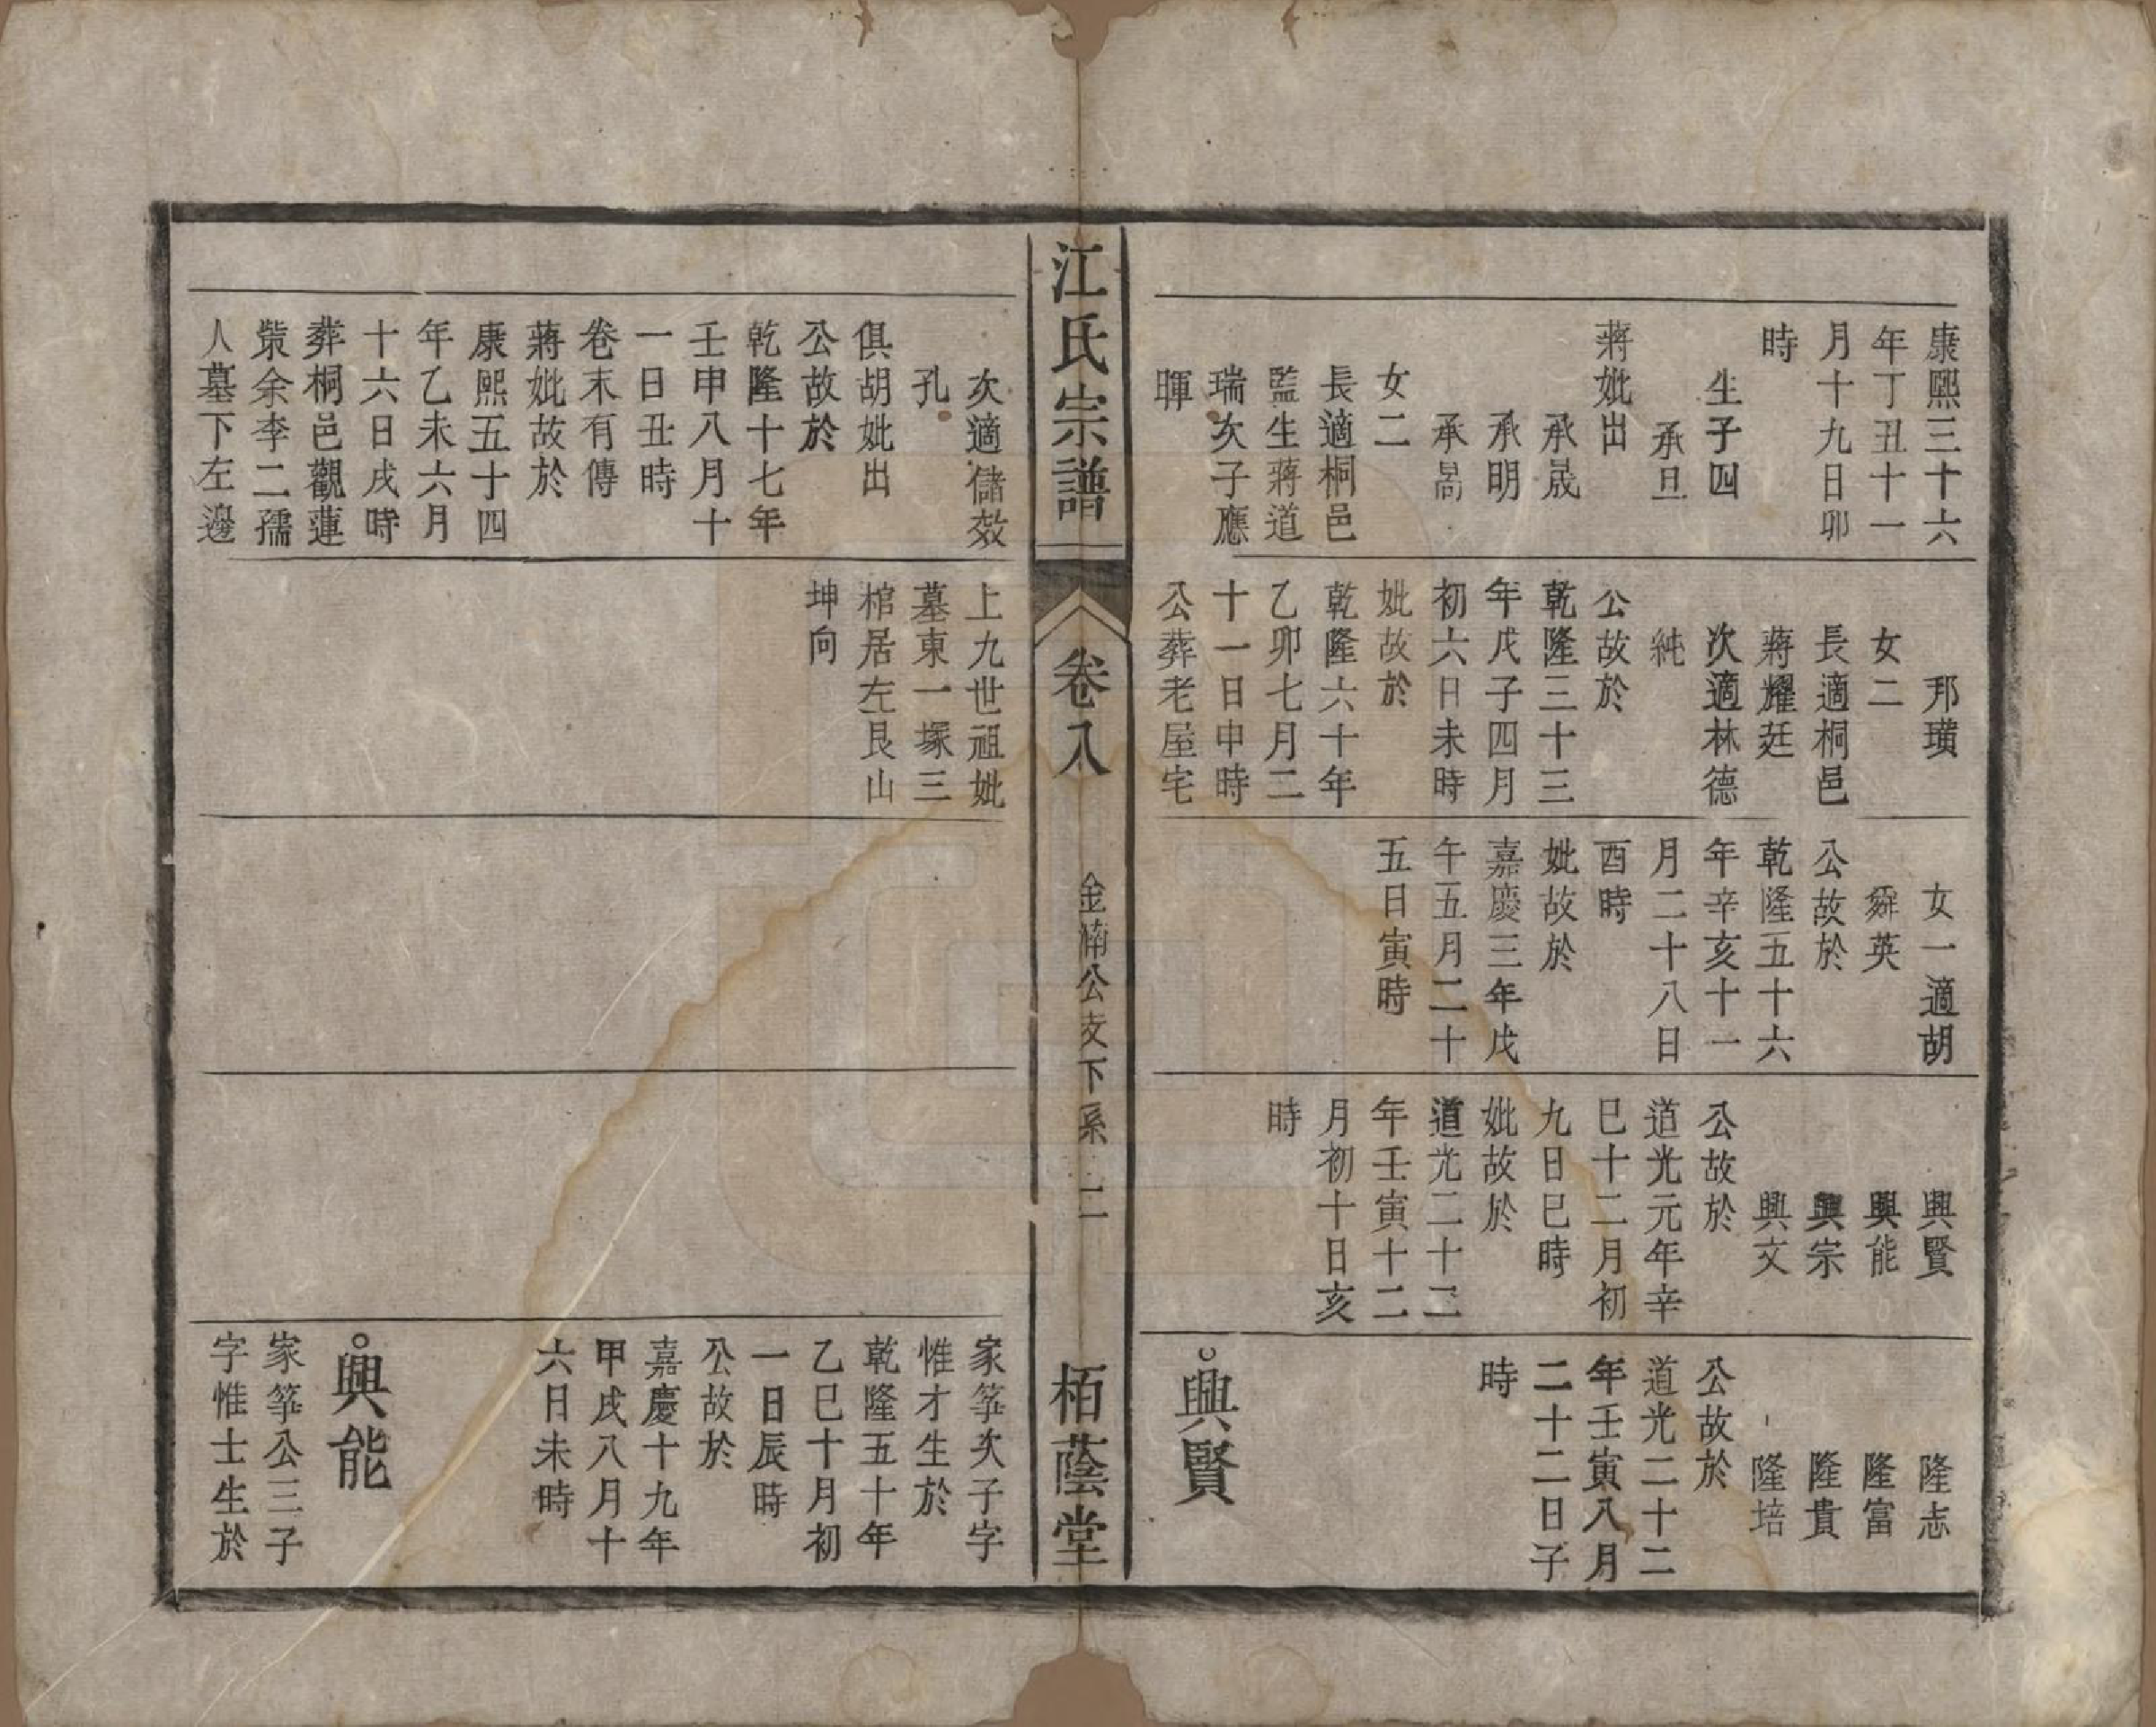 康熙三十六
年丁丑十一
月十九日卯
時
生子四
承旦
蔣妣出
承晟
承明
承暠
女二
長適桐邑
監生蔣道
瑞次子應
暉
邦璜
女二
長適桐邑
蔣耀廷
次適林德
純
公故於
乾隆三十三
年戊子四月
初六日未時
妣故於
乾隆六十年
乙卯七月二
十一日申時
公葬老屋宅
女一適胡
舜英
公故於
乾隆五十六
年辛亥十一
月二十八日
酉時
妣故於
嘉慶三年戊
午五月二十
五日寅時
興賢
興能
興宗
興文
公故於
道光元年辛
巳十二月初
九日巳時
妣故於
道光二十二
年壬寅十二
月初十日亥
時
隆志
隆富
隆貴
隆培
公故於
道光二十二
年壬寅八月
二十二日子
時
興賢
江氏宗譜
卷八
金楠公支下系 二
栢蔭堂
次適儲效
孔
俱胡妣出
公故於
乾隆十七年
壬申八月十
一日丑時
卷末有傳
蔣妣故於
康熙五十四
年乙未六月
十六日戌時
葬桐邑觀蓮
柴余李二孺
人墓下左邊
上九世祖妣
墓東一塚三
棺居左艮山
坤向
家筝次子字
惟才生於
乾隆五十年
乙巳十月初
一日辰時
公故於
嘉慶十九年
甲戌八月十
六日未時
興能
家筝公三子
字惟士生於